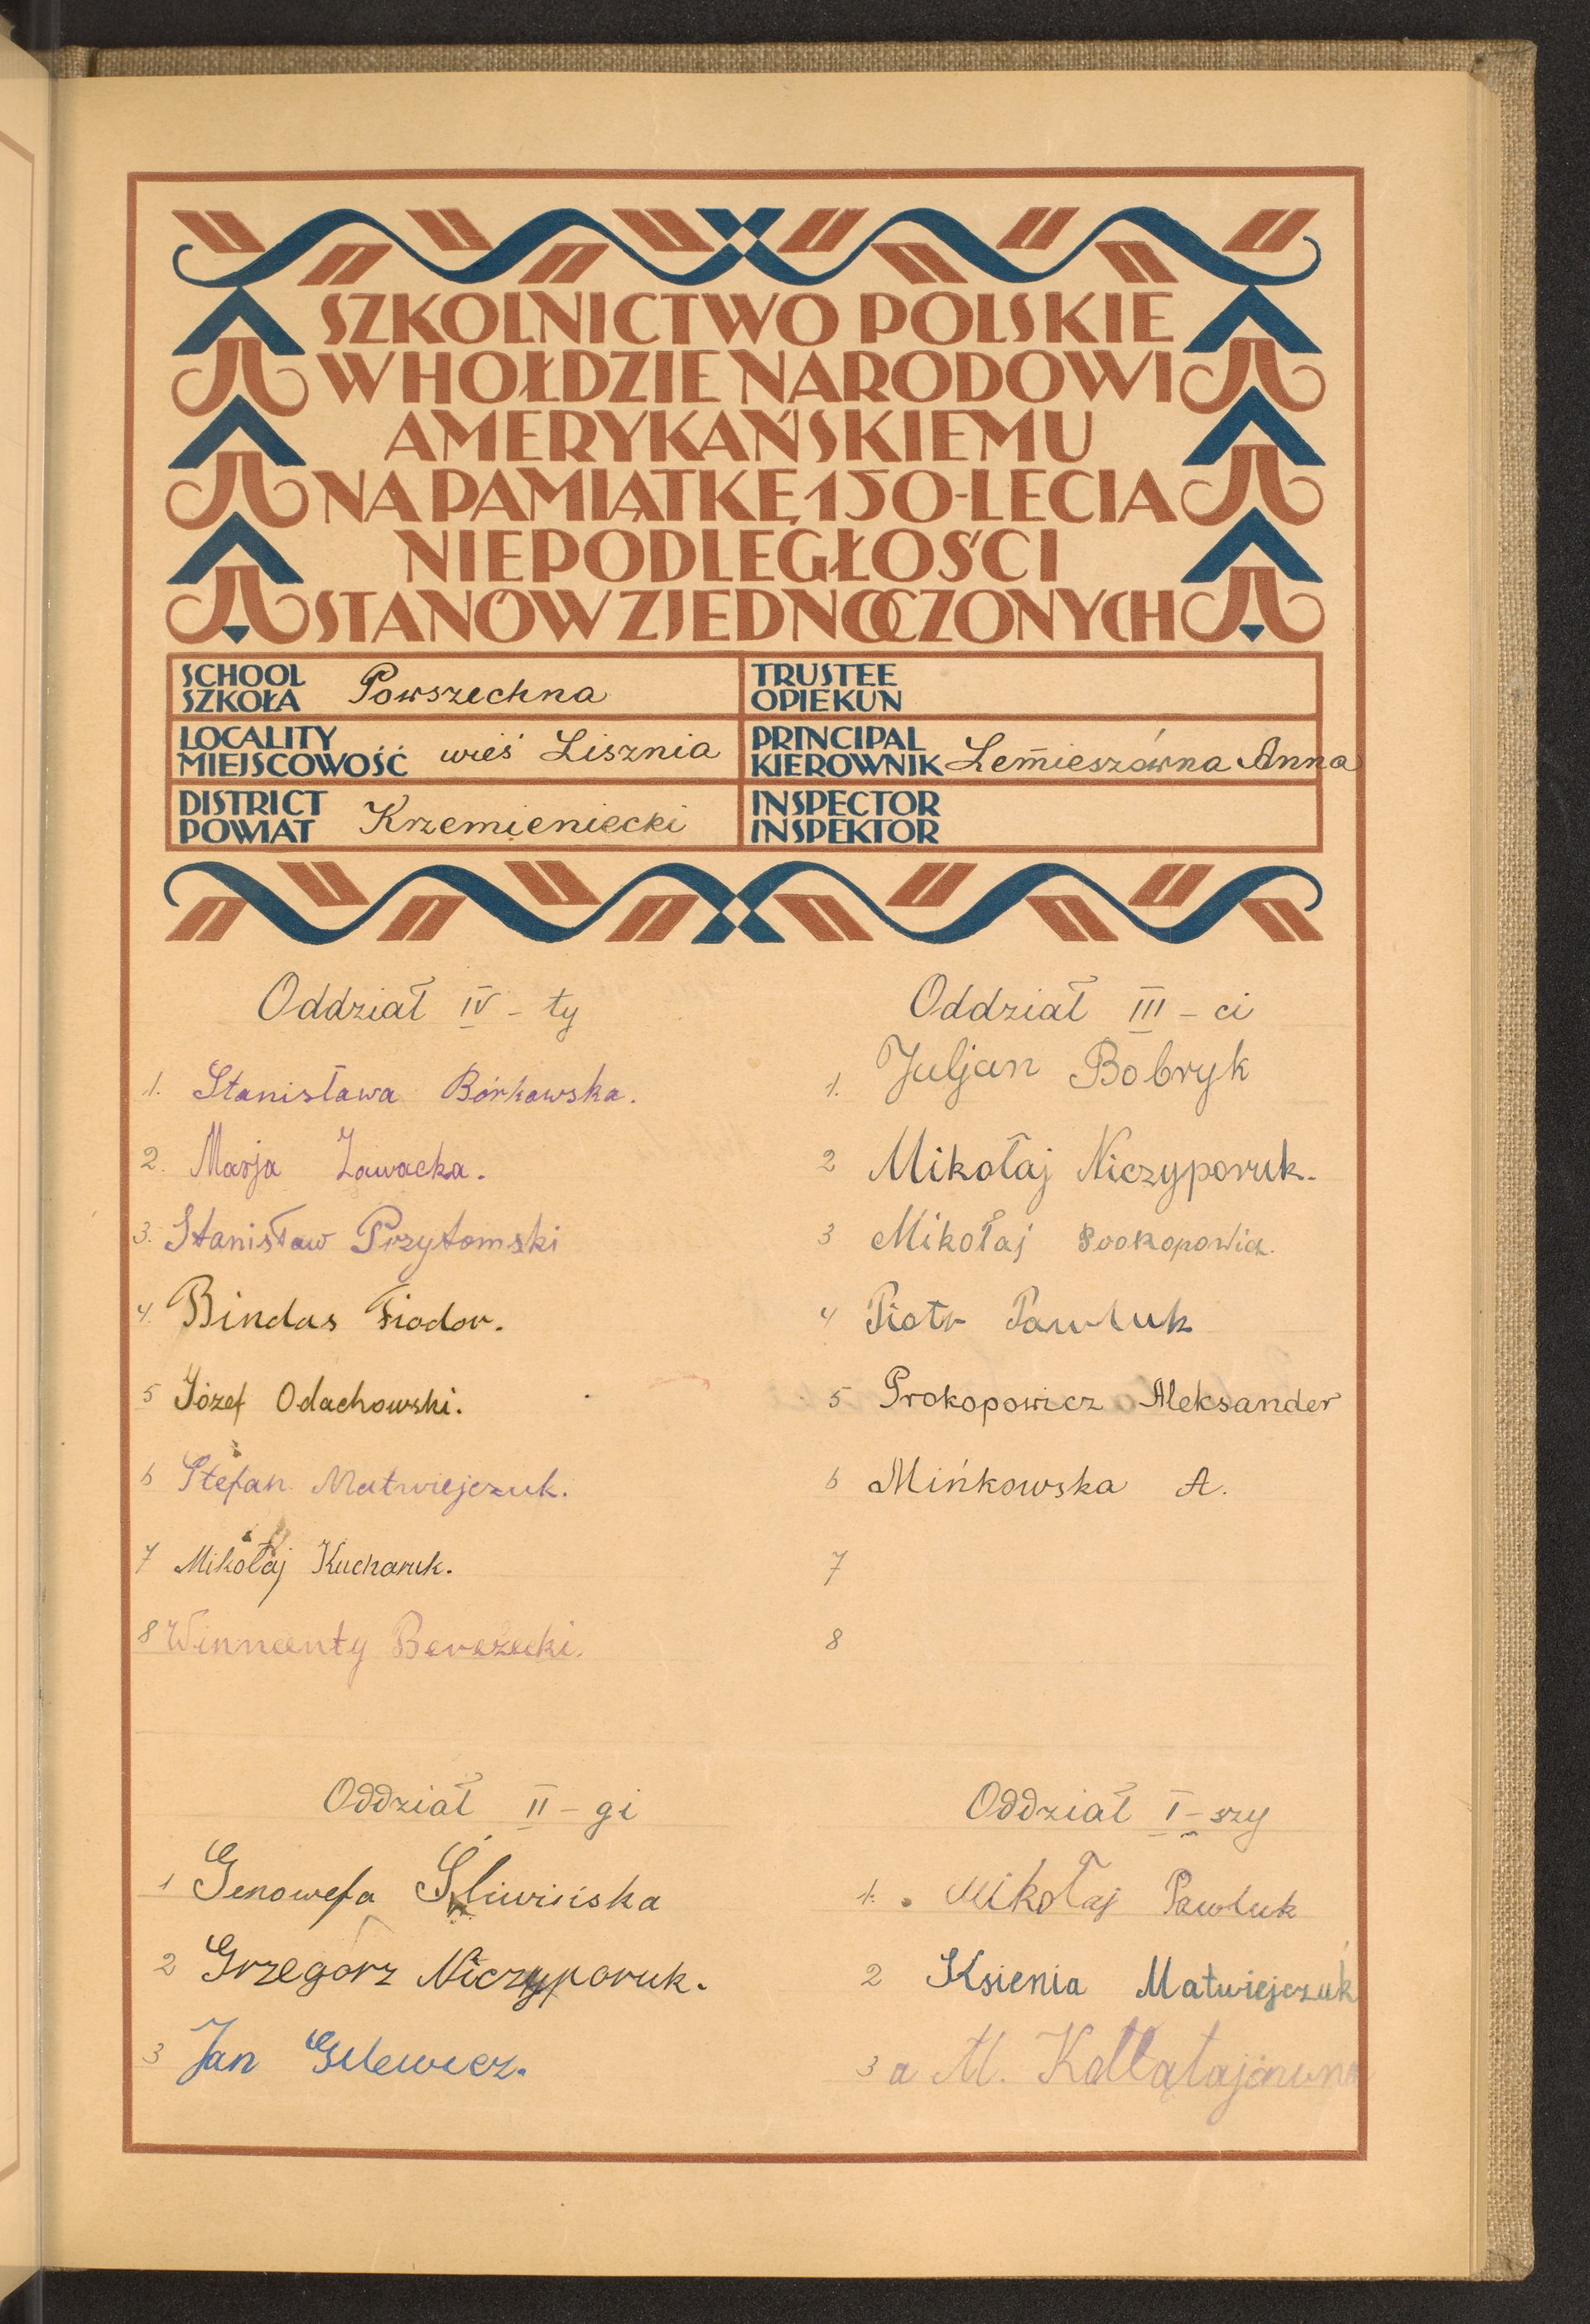 SZKOLNICTWO POLSKIE
W HOŁDZIE NARODOWI
AMERYKAŃSKIEMU
NA PAMIĄTKĘ 150-LECIA
NIEPODLEGŁOŚCI
STANÓW ZJEDNOCZONYCH
SCHOOL
SZKOŁA Powszechna
TRUSTEE
OPIEKUN
LOCALITY
MIEJSCOWOŚĆ wieś Lisznia
PRINCIPAL
KIEROWNIK Lemieszówna Anna
DISTRICT
POWIAT Krzemieniecki
INSPECTOR
INSPEKTOR
Oddział IV - ty
1. Stanisława Bórkowska.
2. Marja Zawacka.
3. Stanisław Przytomski
4. Bindas Fiodor.
5 Józef Odachowski.
6 Stefan Matwiejczuk.
7 Mikołaj Kucharuk.
8 Winncenty Bereżecki.
Oddział III - ci
1. Juljan Bobryk
2 Mikołaj Niczyporuk.
3 Mikołaj
4 Piotr Pawluk
5 Prokopowicz Aleksander
6 Mińkowska A.
7
8
Oddział II - gi
1 Genowefa Śliwińska
2 Grzegórz Niczyporuk.
3 Jan Gilewicz.
Oddział I - szy
1. Mikołaj Pawluk
2 Ksienia Matwiejczuk
3 a M.